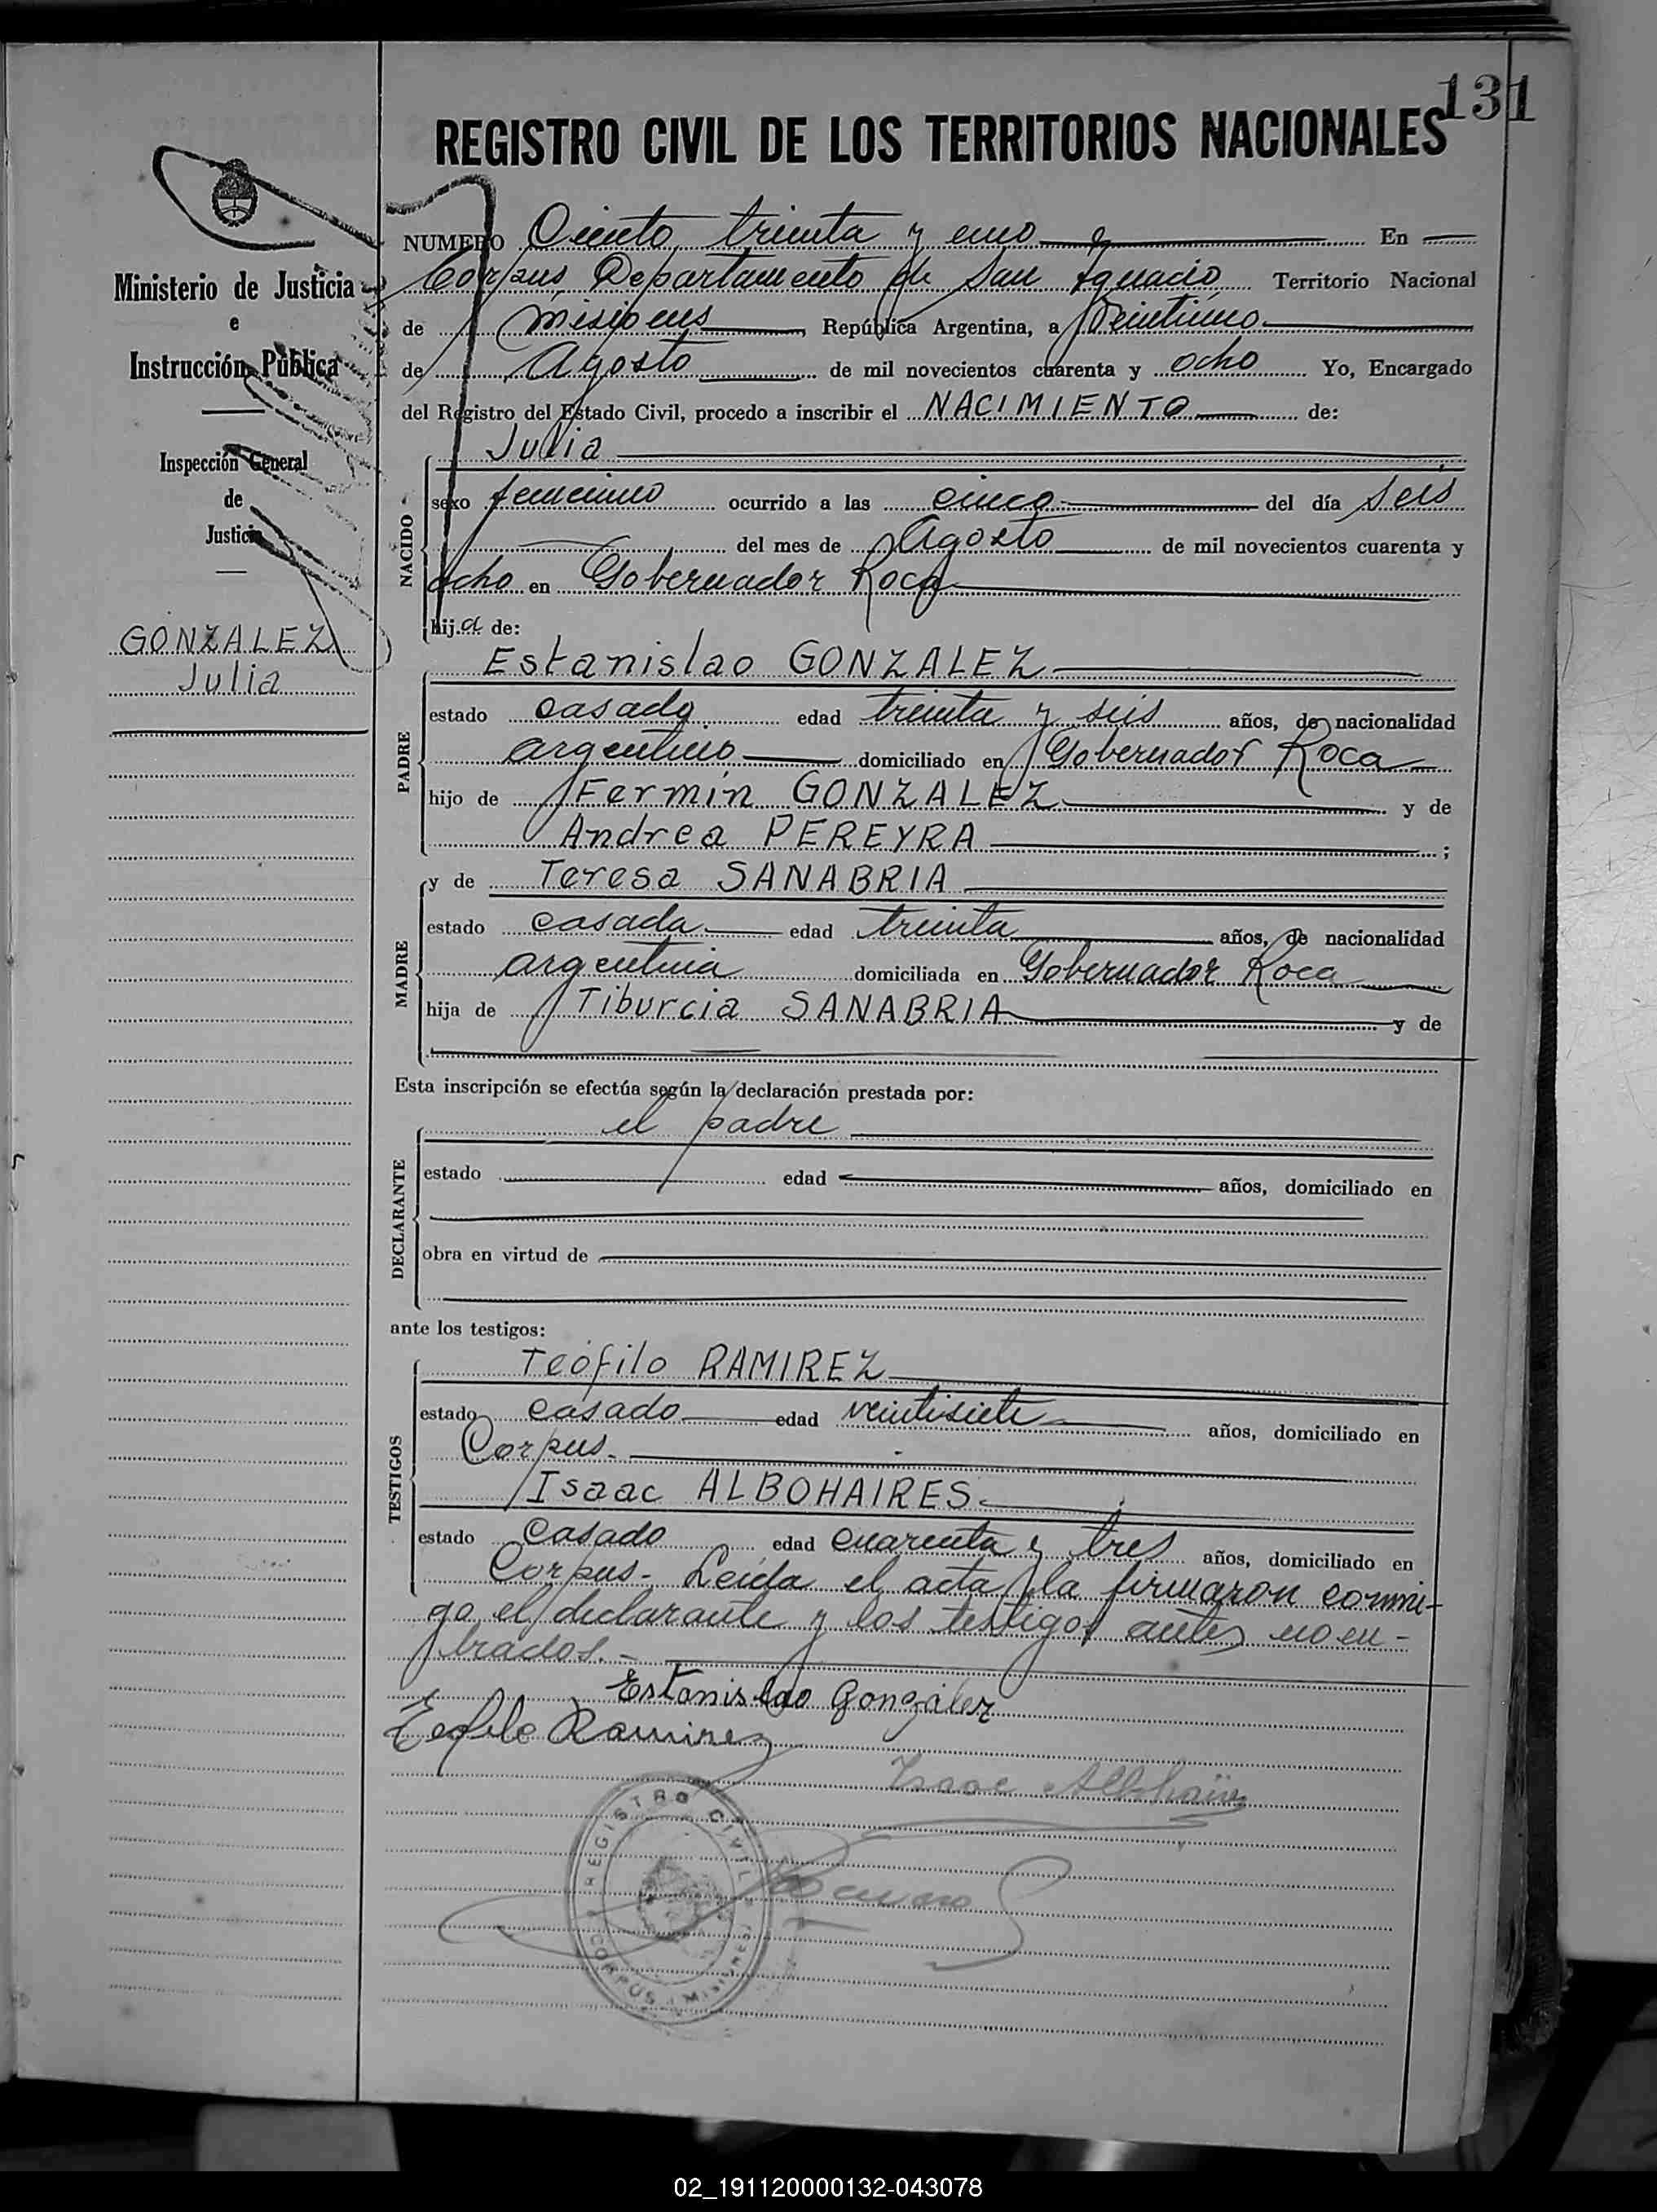 131
REGISTRO CIVIL DE LOS TERRITORIOS NACIONALES
Ministerio de Justicia
e
Instrucción Pública
Inspección General
de
Justicia
GONZALEZ
Julia
NUMERO Ciento treinta y uno En
Corpus, Departamento de San Ignacio Territorio Nacional
de Misiones, República Argentina, a Veintiuno
de Agosto de mil novecientos cuarenta y ocho Yo, Encargado
del Registro del Estado Civil, procedo a inscribir el NACIMIENTO de:
NACIDO
Julia
sexo femenino ocurrido a las cinco del día Seis
del mes de Agosto de mil novecientos cuarenta y
ocho en Gobernador Roca
hija de:
PADRE
Estanislao GONZALEZ
estado casado edad treinta y seis años, de nacionalidad
argentino domiciliado en Gobernador Roca
hijo de Fermin GONZALEZ y de
Andrea PEREYRA ;
MADRE
y de Teresa SANABRIA
estado casada edad treinta años, de nacionalidad
argentina domiciliada en Gobernador Roca
hija de Tiburcia SANABRIA y de
Esta inscripción se efectúa según la declaración prestada por:
DECLARANTE
el padre
estado edad años, domiciliado en
obra en virtud de
ante los testigos:
TESTIGOS
Teófilo RAMIREZ
estado casado edad veintisiete años, domiciliado en
Corpus.
Isaac ALBOHAIRES.
estado casado edad cuarenta y tres años, domiciliado en
Corpus - Leída el acta, la firmaron conmi-
go el declarante y los testigos antes nom-
brados. -
Estanislao Gonzalez
Teofilo Ramirez
Isaac Albohaires
REGISTRO CIVIL
CORPUS (MISIONES)
02_191120000132-043078